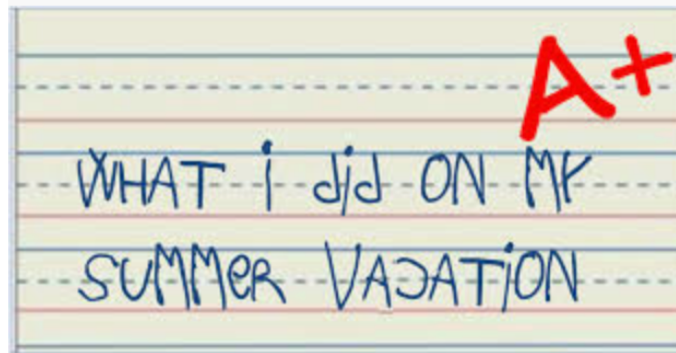 A+
WHAT i did ON MY
SUMMeR VACATiON